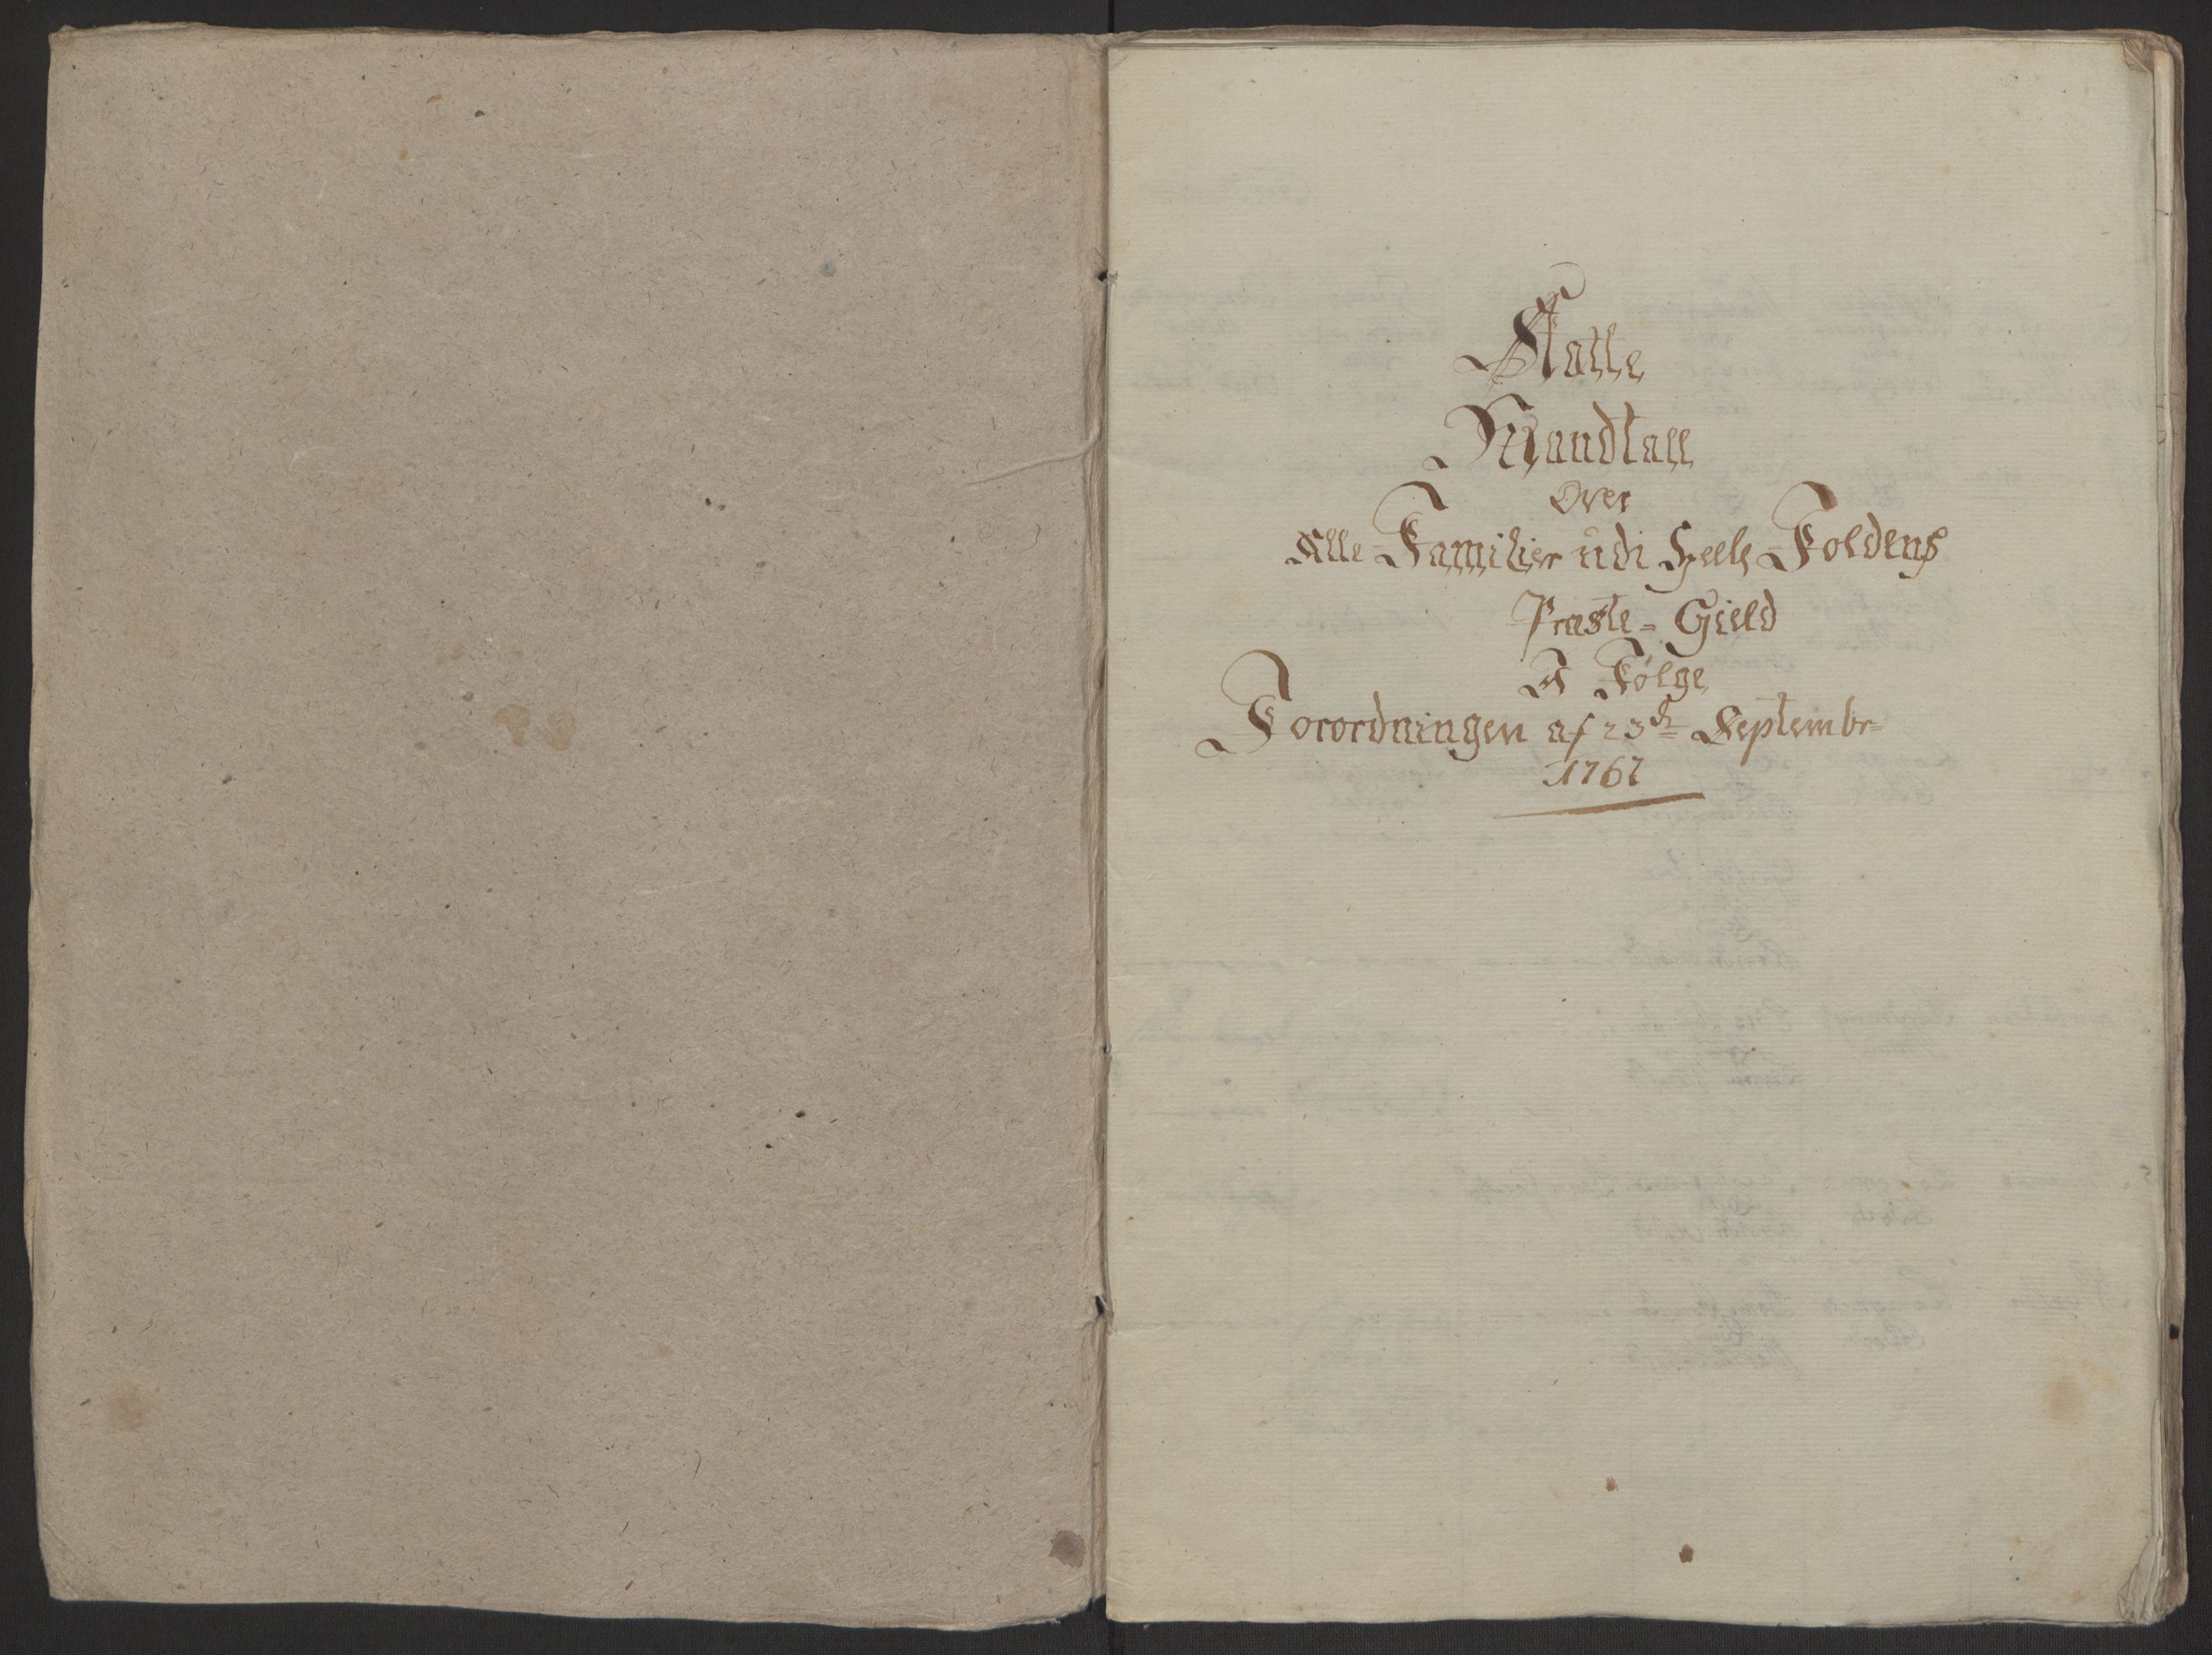 Skatte
Mandtall
Over
Alle Familier udi Heele Foldens
Præste-Gield
I Følge
Forordningen af 23de Septembr=
1762